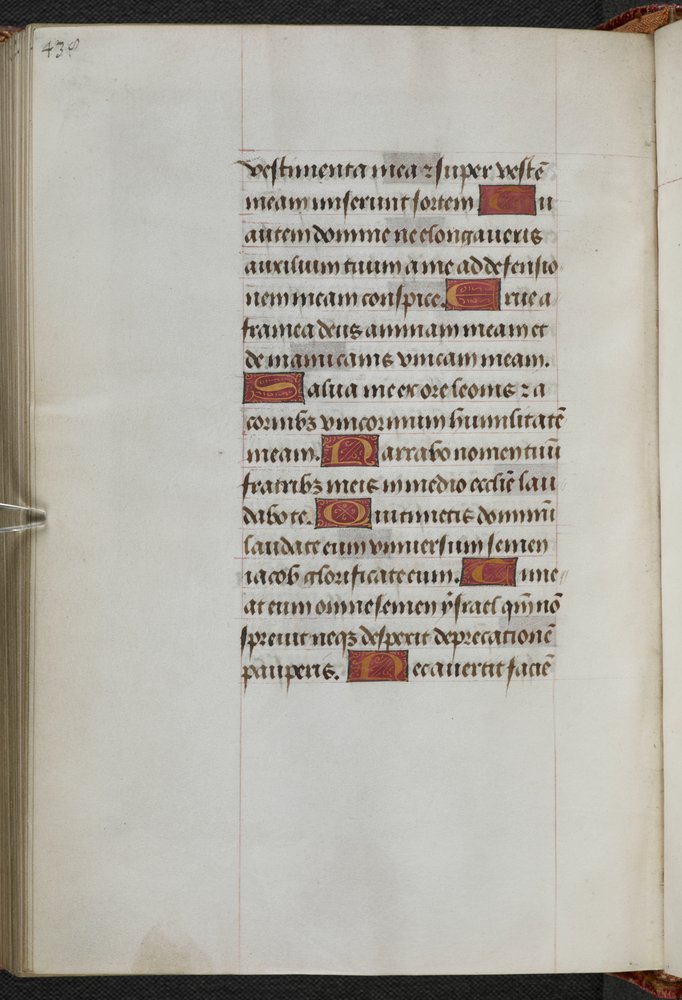 438
vestimenta mea ⁊ super vestē
meam miserunt sortem. Tu
autem domine ne elongaueris
auxilium tuum a me ad defensio
nem meam conspice. Erue a
framea deus animam meam et
de manu canis vnicam meam.
Salua me ex ore leonis ⁊ a
cornibꝫ vnicornium humilitatē
meam. Narrabo nomen tuū
fratribꝫ meis in medio eccliē lau
dabo te. Qui timetis dominū
laudate eum vniuersum semen
iacob glorificate eum. Time
at eum omne semen ysrael qm̄ nō
spreuit neqꝫ despexit deprecationē
pauperis. Nec auertit faciē